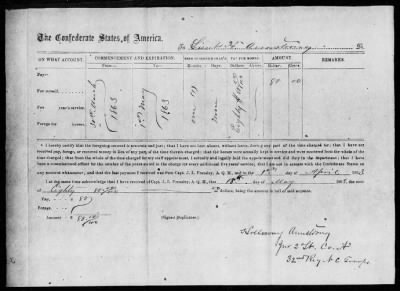 The Confederate States, of America.
To Lieut H. Armstrong Dr.
ON WHAT ACCOUNT. COMMENCEMENT AND EXPIRATION. AMOUNT. REMARKS.
From To Dollars. Cents.
Pay—
For myself,
For years' service,
Forage for horses,
1863
1st May 1863
one
Eighty
80 00
I hereby certify that the foregoing account is accurate and just; that I have not been absent without leave, during any part of the time charged for; that I have not
received pay, forage, or received money in lieu of any part of the time therein charged; that the horses were actually kept in service and were mustered for the whole of the
time charged; that for the whole of the time charged for my staff appointment, I actually and legally held the appointment and did duty in the department; that I have
been a commissioned officer for the number of years stated in the charge for every additional five years' service; that I am not in arrears with the Confederate States on
any account whatsoever, and that the last payment I received was from Capt. J. L. Fremsley, A. Q. M., and to the 1st day of April 1863
I at the same time acknowledge that I have received of Capt. J. L. Fremsley, A. Q. M., this 15th day of May 1863, the sum of
Eighty 00/100 Dollars, being the amount in full of said account.
Pay, $ 80
Forage,
Amount, $ 80 00/100
(Signed Duplicates.)
Holloway Armstrong
Jnr 2d Lt. Co. A
32nd Reg N C Troops